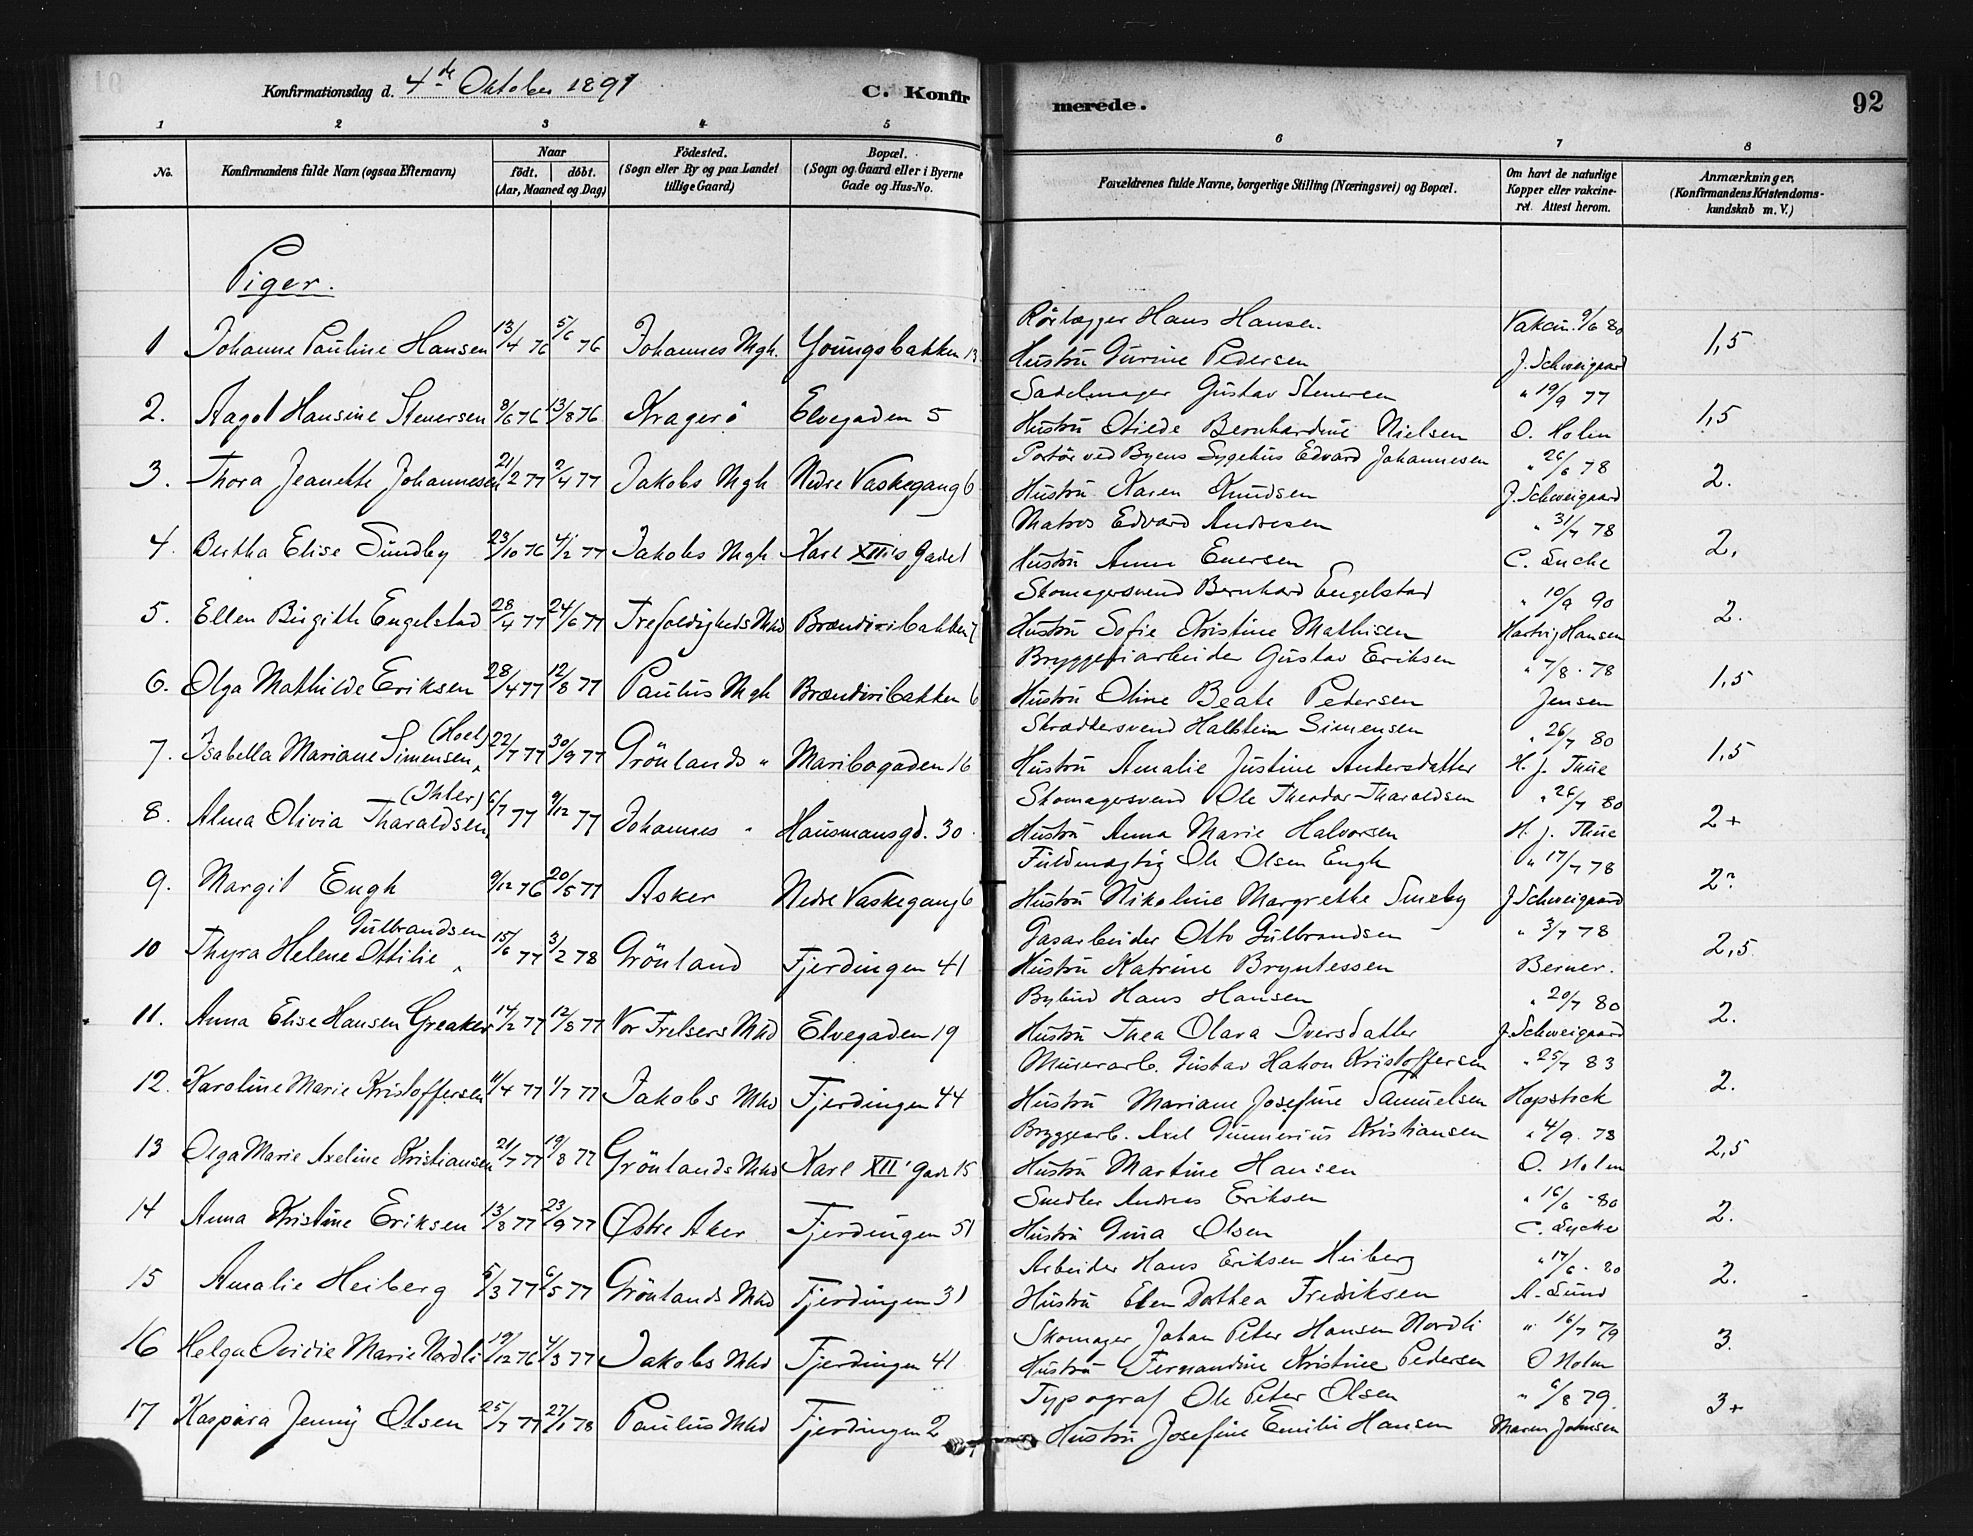 Konfirmationsdag d. 4de Oktober 1891
C. Konfir
merede.
92
1 2 3 4 5 6 7 8
No.
Konfirmandens fulde Navn (ogsaa Efternavn)
Naar
födt. döbt.
(Aar, Maaned og Dag)
Födested.
(Sogn eller By og paa Landet
tillige Gaard)
Bopæl.
(Sogn og Gaard eller i Byerne
Gade og Hus-No.
Forældrenes fulde Navne, borgerlige Stilling (Næringsvei) og Bopæl.
Om havt de naturlige
Kopper eller vakcine-
ret. Attest herom.
Anmærkninger.
(Konfirmandens Kristendoms-
kundskab m. V.)
Piger.
1 Johanne Pauline Hansen 13/4 76 5/6 76 Johannes Mgh. Youngsbakken 13
Rörlægger Hans Hansen. Vakcin. 9/6 80
Hustru Gurine Pedersen J. Schweigaard 1,5
2. Aagot Hansine Stenersen 8/6 76 13/8 76 Kragerö Elvegaden 5
Sadelmager Gustav Stenersen " 19/9 77
Hustru Otiede Bernhardine Nielsen O. Holm 1,5
3. Thora Jeanette Johannesen 21/2 77 2/4 77 Jakobs Mgh Nedre Vaskegang 6
Portör ved Byens Sygehus Edvard Johannesen " 26/6 78
Hustru Karen Knudsen J. Schweigaard 2.
4. Bertha Elise Sundby 23/10 76 4/2 77 Jakobs Mgh Karl XII's Gade 1
Matros Edvard Andresen " 31/7 78
Hustru Anna Enersen C. Lycke 2,
5. Ellen Birgitte Engelstad 28/4 77 24/6 77 Trefoldigheds Mhd Brændviribakken 7
Skomagersvend Bernhard Engelstad " 10/9 90
Hustru Sofie Kristine Mathisen Hartvig Hansen 2.
6. Olga Mathilde Eriksen 28/4 77 12/8 77 Paulus Mgh Brændviribakken 6
Bryggeriarbeider Gustav Eriksen " 7/8 78
Hustru Oline Beate Pedersen Jensen 1,5
7. Isabella Mariane Simensen (Hoel) 22/7 77 30/9 77 Grönlands " Maribogaden 16
Skræddersvend Hallstein Simensen " 26/7 80
Hustru Amalie Justine Andersdatter H. J. Thue 1,5
8. Alma Olivia Tharaldsen (Ihler) 6/7 77 9/12 77 Johannes " Hausmansgd. 30.
Skomagersvend Ole Theodor Tharaldsen " 26/7 80
Hustru Anna Marie Halvorsen H. J. Thue 2+
9. Margit Engh 9/12 76 20/5 77 Asker Nedre Vaskegang 6
Fuldmægtig Ole Olsen Engh " 17/7 78
Hustru Nikoline Margrethe Smeby J. Schweigaard 2?
10 Thyra Helene Ottilie Gulbrandsen 15/6 77 3/2 78 Grönland Fjerdingen 41
Gasarbeider Otto Gulbrandsen " 3/7 78
Hustru Katrine Bryntessen Berner. 2,5
11. Anna Elise Hansen Greaker 14/2 77 12/8 77 Vor Frelsers Mhd Elvegaden 19
Bybud Hans Hansen " 20/7 80
Hustru Thea Olava Iversdatter J. Schweigaard 2.
12. Karoline Marie Kristoffersen 11/4 77 1/7 77 Jakobs Mhd Fjerdingen 44
Murerarb. Gustav Hakon Kristoffersen " 25/7 83
Hustru Mariane Josefine Samuelsen Hopstock 2.
13 Olga Marie Axeline Kristiansen 21/7 77 19/8 77 Grönlands Mhd Karl XII' Gade 15
Bryggearb. Axel Gunnerius Kristiansen " 4/9 78
Hustru Martine Hansen O. Holm 2,5
14 Anna Kristine Eriksen 13/8 77 23/9 77 Østre Aker Fjerdingen 51
Snedker Andreas Eriksen " 16/6 80
Hustru Gina Olsen C. Lycke 2.
15 Amalie Heiberg 5/3 77 6/5 77 Grönlands Mhd Fjerdingen 31
Arbeider Hans Eriksen Heiberg " 17/6 80
Hustru Elen Dorthea Fredriksen A. Lund 2.
16 Helga Ovidie Marie Nordli 19/12 76 4/3 77 Jakobs Mhd Fjerdingen 41
Skomager Johan Peter Hansen Nordli " 16/7 79
Hustru Fernandine Kristine Pedersen O Holm 3.
17 Kaspara Jenny Olsen 25/7 77 27/1 78 Paulus Mhd Fjerdingen 2
Typograf Ole Peter Olsen " 6/8 79.
Hustru Josefine Emilie Hansen Maren Johnsen 3+